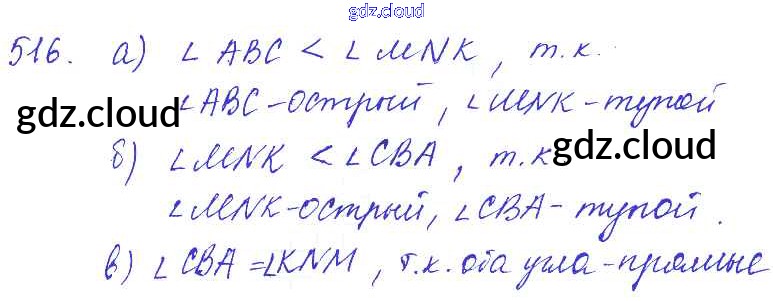 gdz.cloud
516. а) ∠ABC < ∠MNK, т.к.
∠ABC-острый, ∠MNK-тупой
gdz.cloud
б) ∠MNK < ∠CBA, т.к
gdz.cloud
∠MNK-острый, ∠CBA-тупой.
в) ∠CBA = ∠KNM, т.к. оба угла-прямые